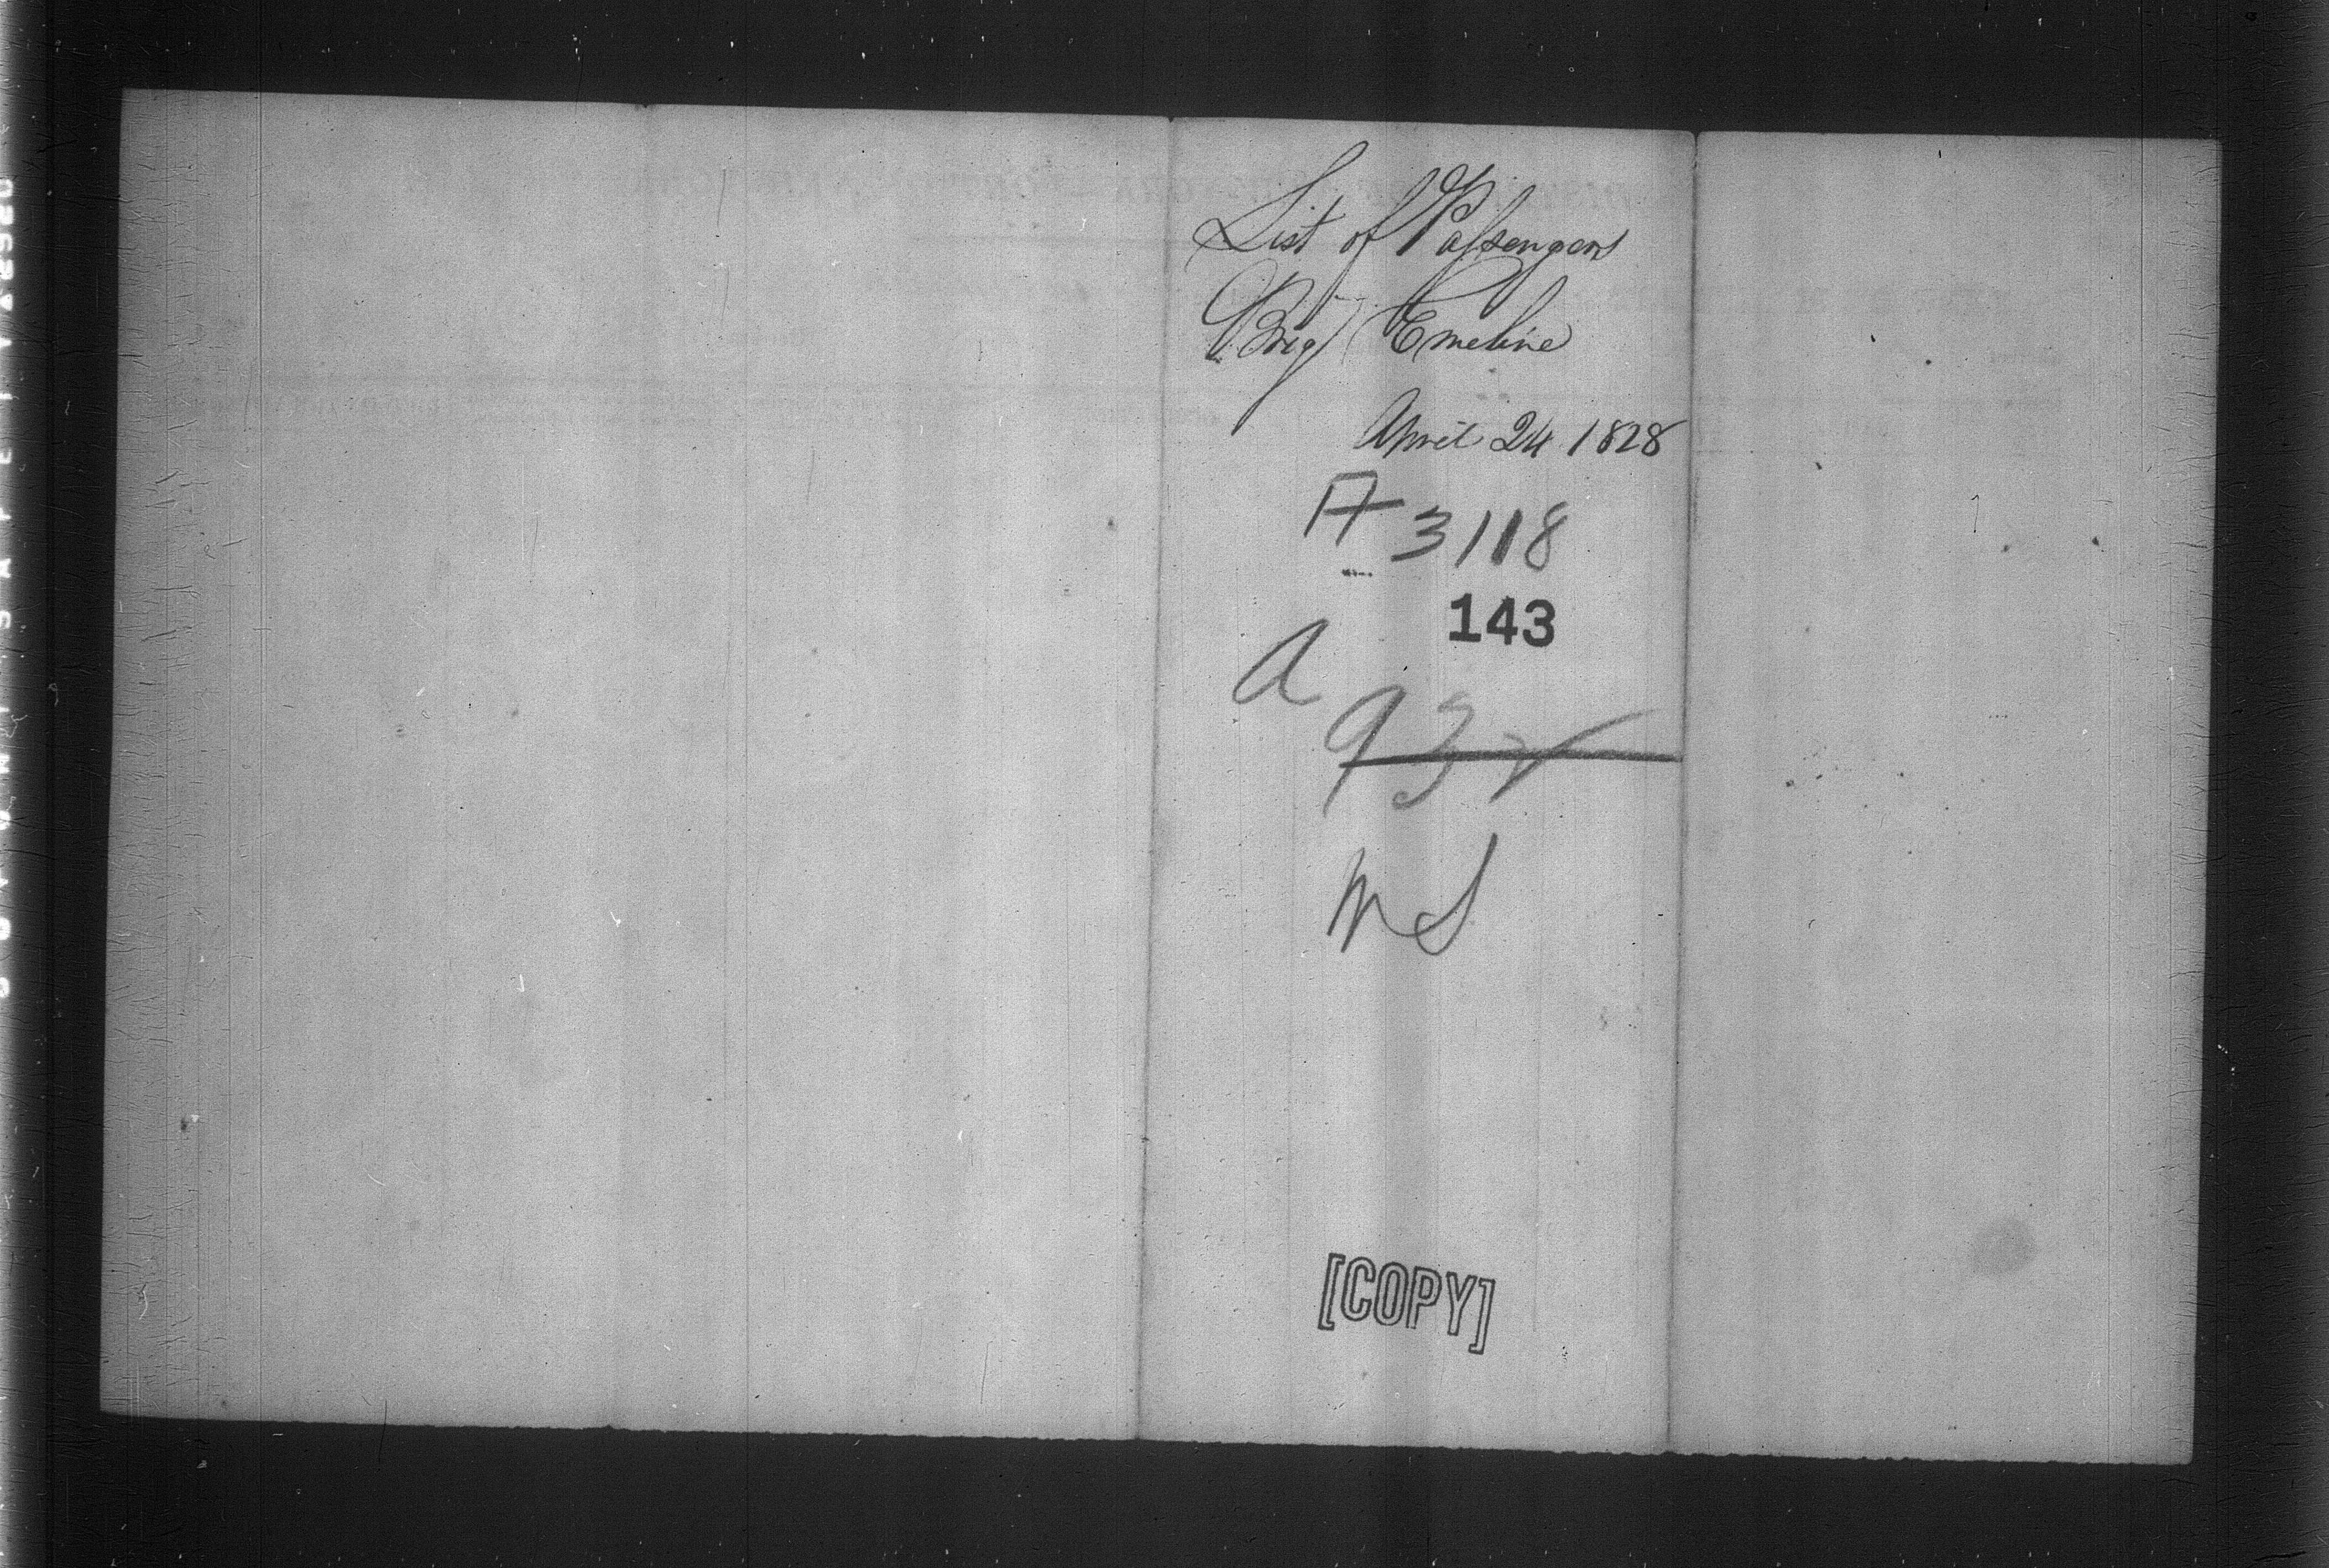 List of Passengers
Brig Emeline
April 24 1828
A 3118
143
A
932
MS
[COPY]